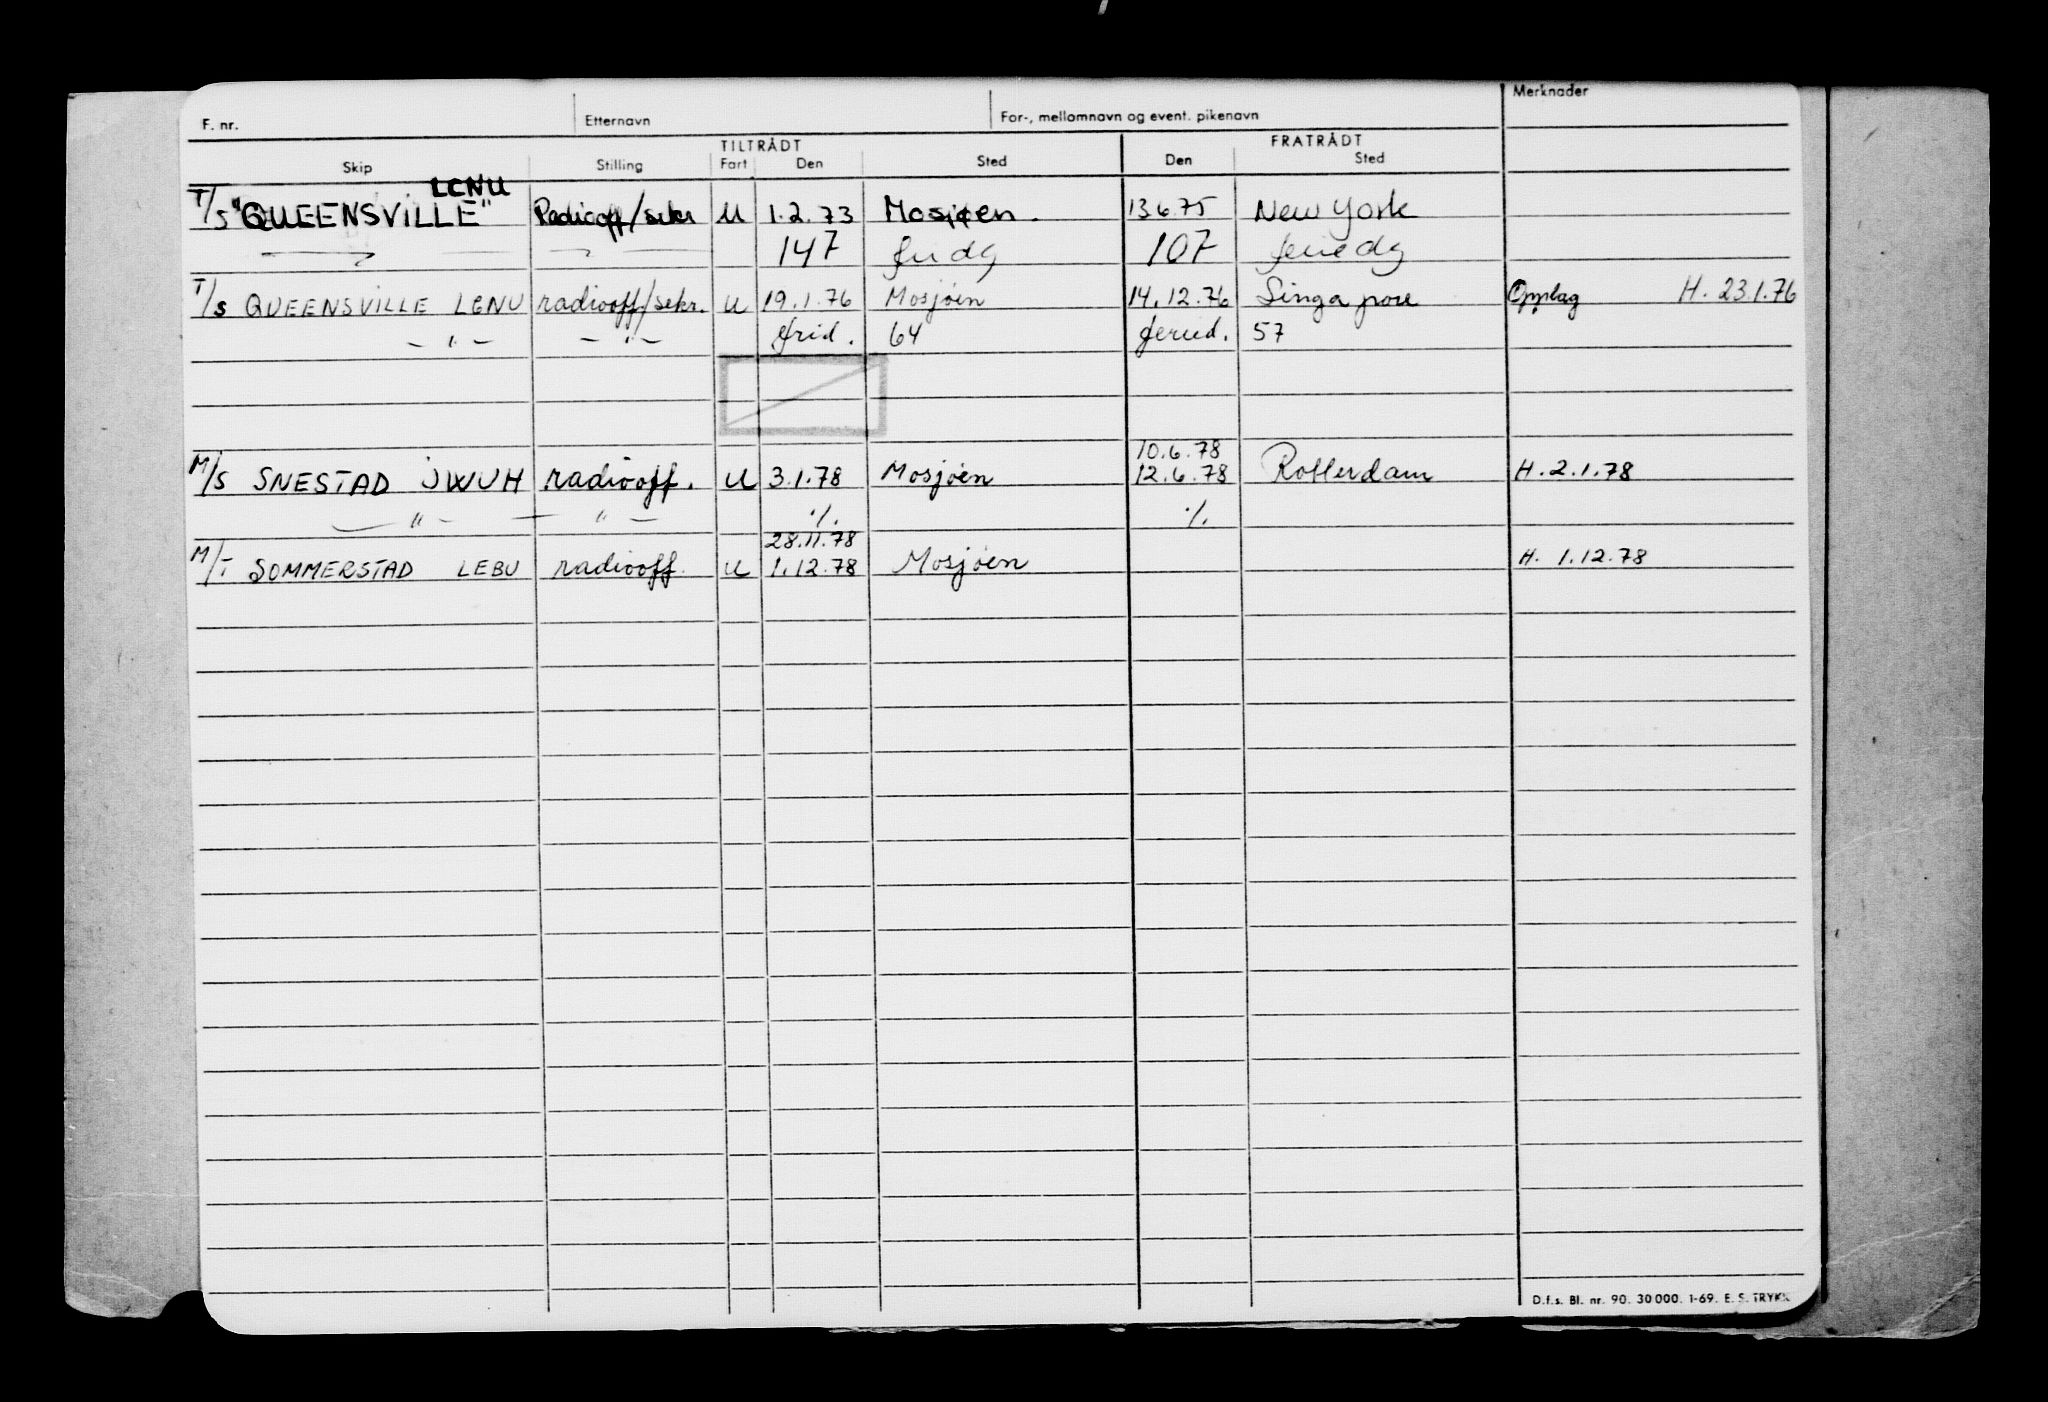 F. nr. Etternavn For-, mellomnavn og event. pikenavn Merknader
TILTRÅDT FRATRÅDT
Skip Stilling Fart Den Sted Den Sted
LCNU
T/S "QUEENSVILLE" Radiooff/sekr U 1.2.73 Mosjøen. 13.6.75 New York
147 fridg 107 feriedg
T/S QUEENSVILLE LCNU radiooff/sekr. U 19.1.76 Mosjøen 14.12.76 Singapore Opplag H. 23.1.76
- " - - " - frid. 64 feried. 57
10.6.78
M/S SNESTAD JWUH radiooff. U 3.1.78 Mosjøen 12.6.78 Rotterdam H. 2.1.78
- " - - " - ./. ./.
28.11.78
M/T SOMMERSTAD LEBU radiooff. U 1.12.78 Mosjøen H. 1.12.78
D.f.s. Bl. nr. 90. 30 000. 1-69. E. S. TRYKK